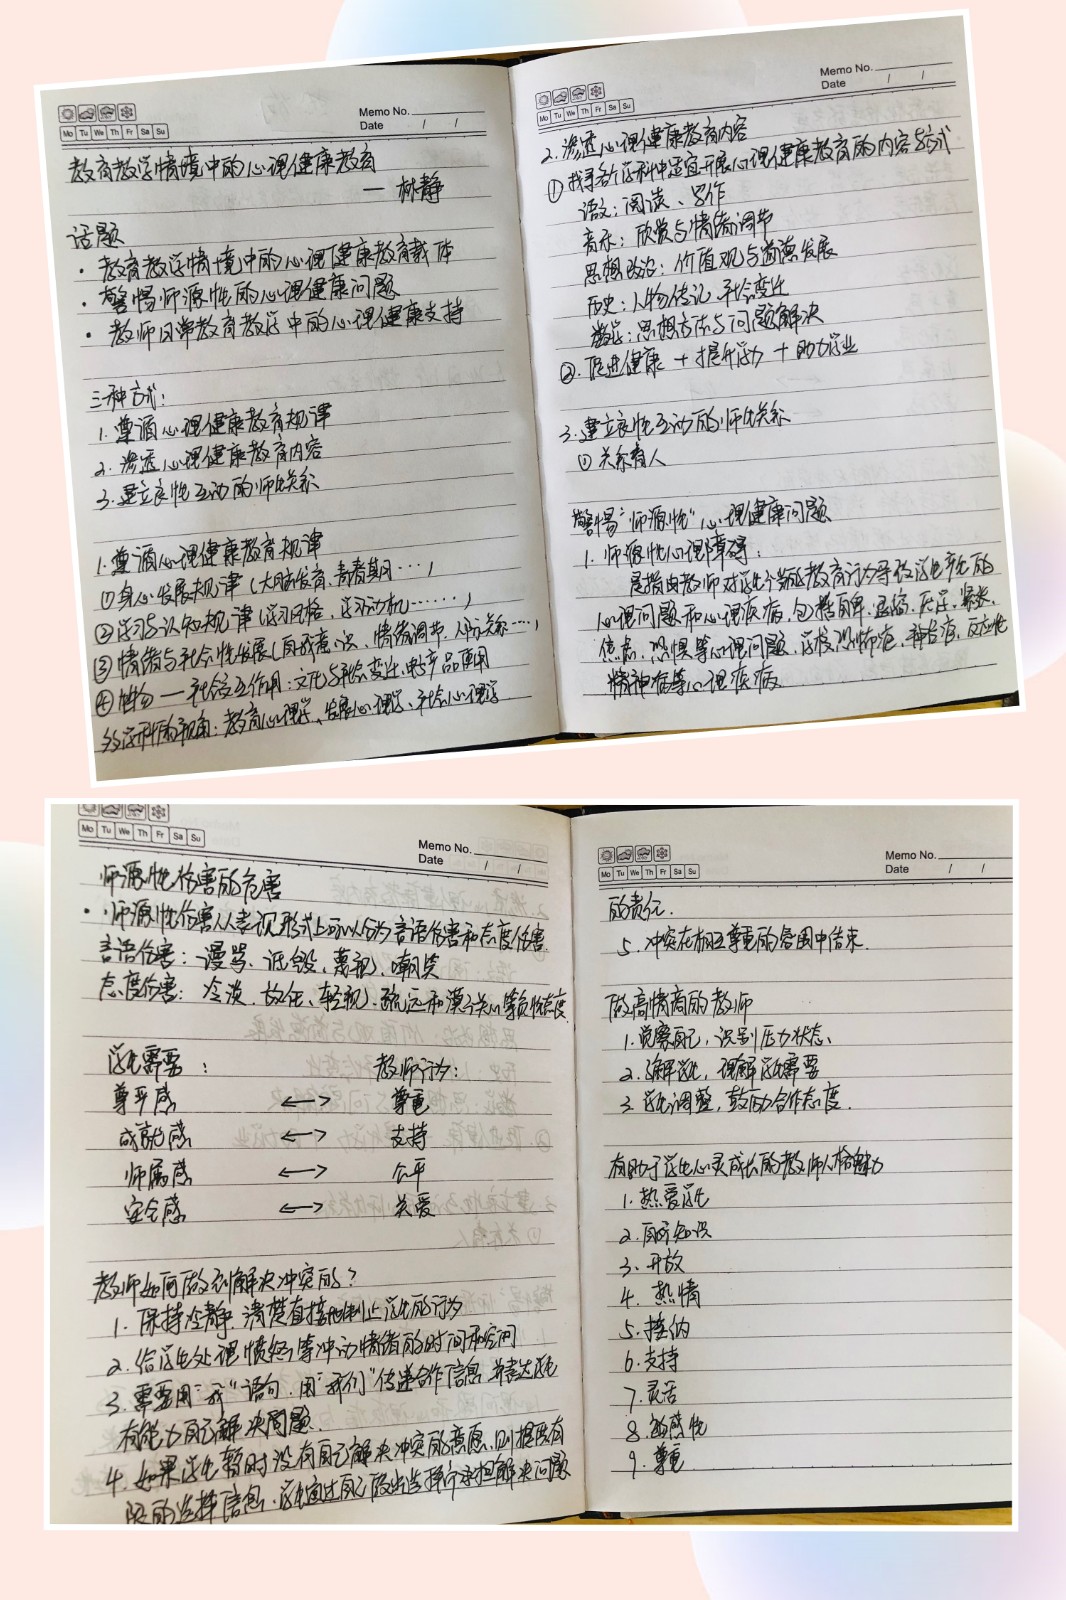 Mo Tu We Th Fr Sa Su
Memo No.
Date / /
教育教学情境中的心理健康教育
— 林静
话题
· 教育教学情境中的心理健康教育载体
· 警惕师源性的心理健康问题
· 教师日常教育教学中的心理健康支持
三种方式：
1. 遵循心理健康教育规律
2. 渗透心理健康教育内容
3. 建立良性互动的师生关系
1. 遵循心理健康教育规律
① 身心发展规律（大脑发育、青春期……）
② 学习与认知规律（学习风格、学习动机……）
③ 情绪与社会性发展（自我意识、情绪调节、人际关系……）
④ 生物—社会交互作用：文化与社会变迁、电子产品使用
多学科的视角：教育心理学、发展心理学、社会心理学
Mo Tu We Th Fr Sa Su
Memo No.
Date / /
2. 渗透心理健康教育内容
① 找寻各个学科中适宜开展心理健康教育的内容与方式
语文：阅读、写作
音乐：欣赏与情绪调节
思想政治：价值观与道德发展
历史：人物传记、社会变迁
数学：思想方法与问题解决
②. 促进健康 + 提升学力 + 助力学业
3. 建立良性互动的师生关系
① 关系育人
警惕“师源性”心理健康问题
1. 师源性心理障碍：
是指由教师对学生个的教育行为导致学生产生的
心理问题和心理疾病，包括自卑、退缩、厌学、紧张、
焦虑、恐惧等心理问题、学校恐怖症、神经症、反应性
精神病等心理疾病
Mo Tu We Th Fr Sa Su
Memo No.
Date / /
师源性伤害的危害
· 师源性伤害从表现形式上可以分为言语伤害和态度伤害.
言语伤害：谩骂、诋毁、蔑视、嘲笑
态度伤害：冷淡、放任、轻视、疏远和漠不关心等负性态度.
学生需要： 教师行为：
尊严感 <—> 尊重
成就感 <—> 支持
归属感 <—> 公平
安全感 <—> 关爱
教师如何做到解决冲突的？
1. 保持冷静、清楚直接地制止学生的行为
2. 给学生处理愤怒等冲动情绪的时间和空间
3. 需要用“我”语句，用“我们”传递合作信息，并表达学生
有能力自己解决问题.
4. 如果学生暂时没有自己解决冲突的意愿，则提供有
限的选择信息，学生通过自己做出选择来承担解决问题
Mo Tu We Th Fr Sa Su
Memo No.
Date / /
的责任.
5. 冲突在相互尊重的氛围中结束.
做高情商的教师
1. 觉察自己，识别压力状态、
2. 了解学生，理解学生需要
3. 学生调整，鼓励合作态度.
有助于学生心灵成长的教师人格魅力
1. 热爱学生
2. 自我知识
3. 开放
4. 热情
5. 接纳
6. 支持
7. 灵活
8. 敏感性
9. 尊重